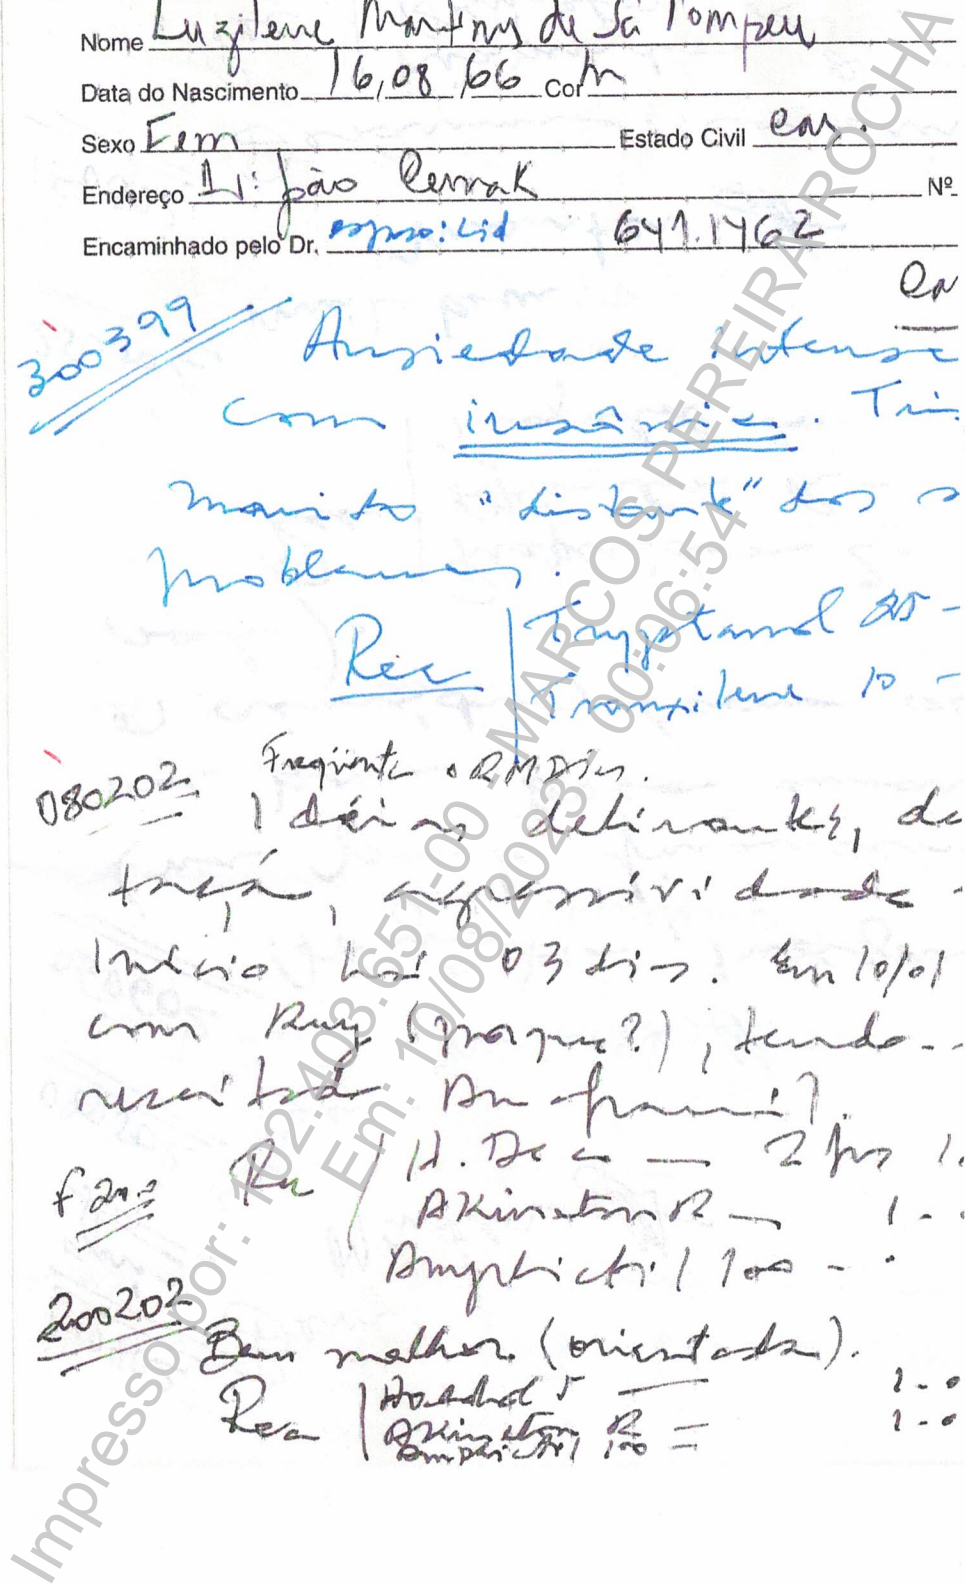 Nome Luzilene Martins de Sá Pompeu
Data do Nascimento 16,08,66 Cor m
Sexo Fem Estado Civil cas.
Endereço João Nº
Encaminhado pelo Dr. esposo: Cid 641.1462
300399 Ansiedade intensa
com insônia.
marido "distante" dos
problemas.
Rec Tryptanol 25 -
Tranxilene 10 -
080202 Freqüenta
Idéias delirantes, de
tação, agressividade
Início há 03 dias. Em 10/01
com Ruy (porque?), tendo
receitado Anafranil.
Rec H. Deca — 2
Akineton R — 1 -
Amplictil 100 -
200202
Bem melhor (orientada).
Rec Haldol 5 — 1 - 0
Akineton R — 1 - 0
Amplictil 100 —
Impresso por: 102.403.651-00 - MARCOS PEREIRA ROCHA
Em: 10/08/2023 00:06:54